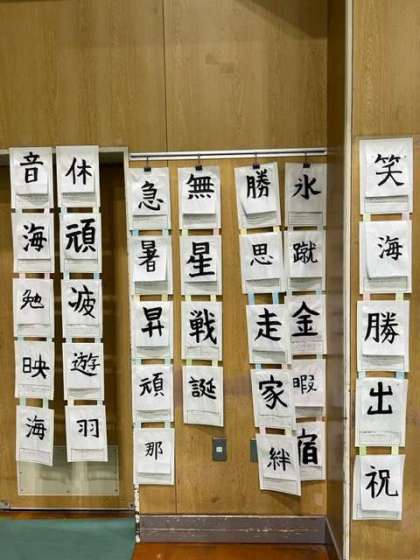 笑海勝出祝
氷蹴金暇宿
勝思走家絆
無星戦誕
急暑昇頑那
休頑疲遊羽
音海勉映海